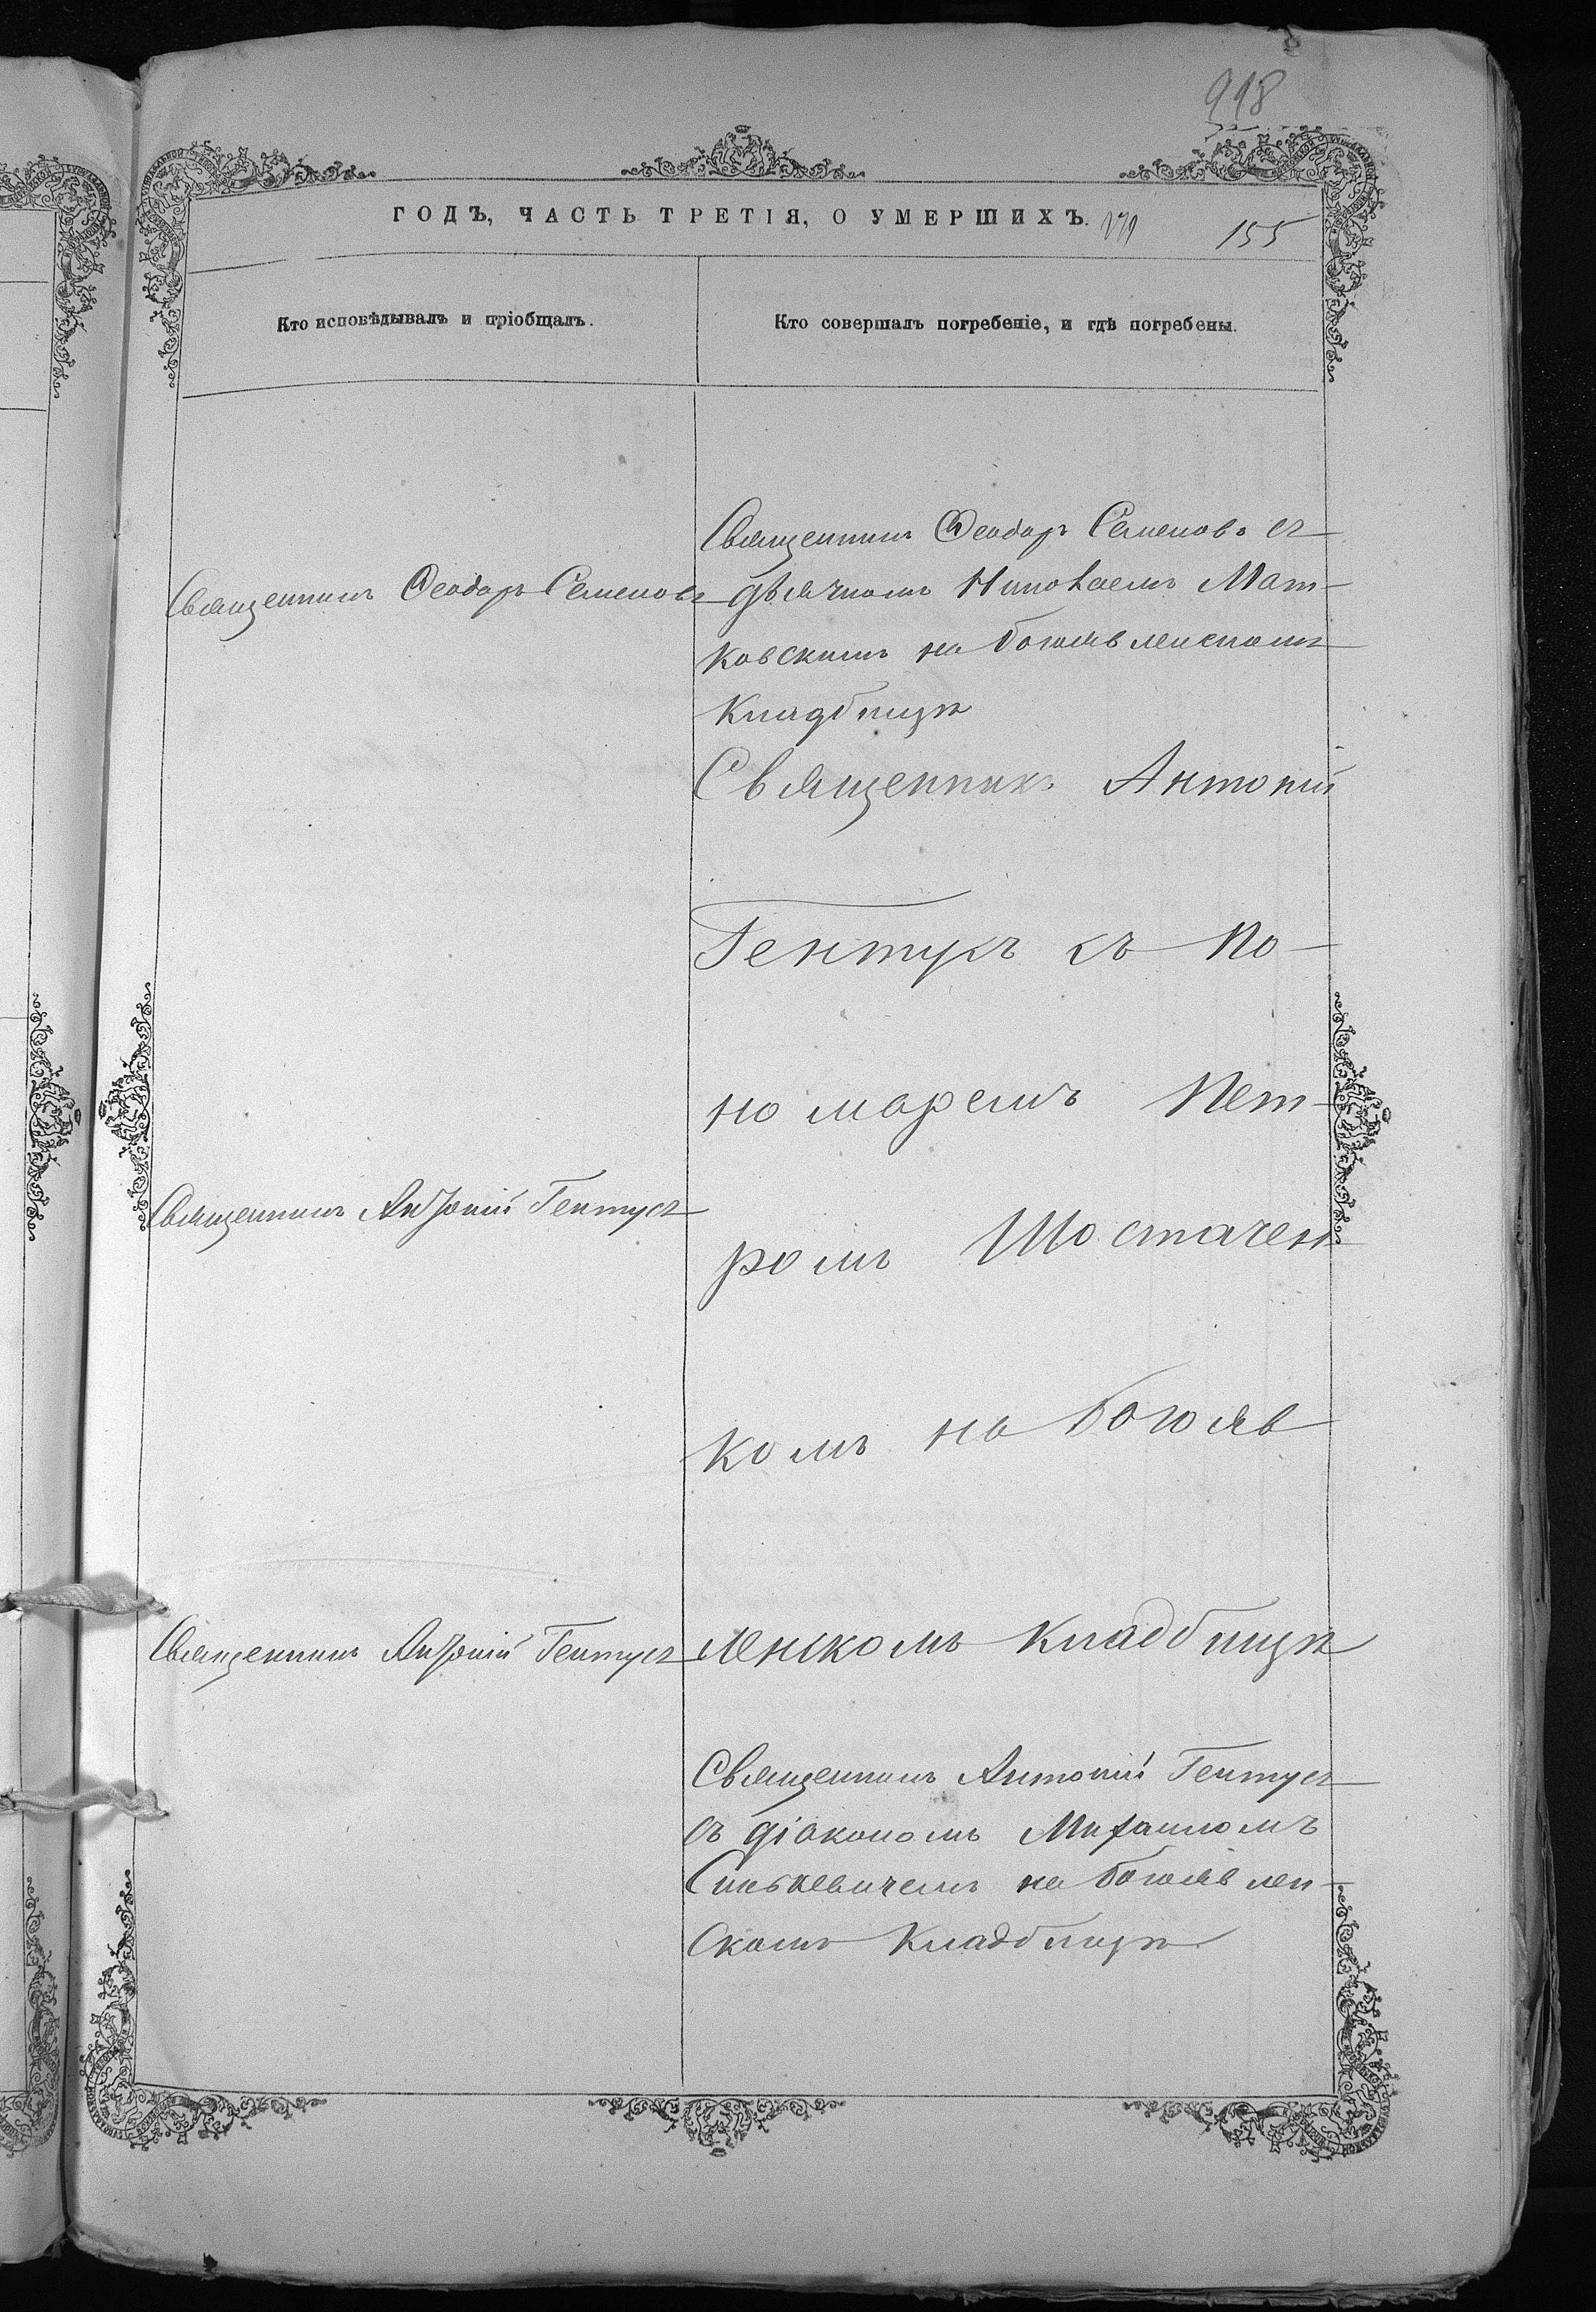 918
ГОДЪ, ЧАСТЬ ТРЕТІЯ, О УМЕРШИХЪ.
155
Кто исповѣдывалъ и пріобщалъ.
Кто совершалъ погребеніе, и гдѣ погребены.
Священникъ Ѳеодоръ Семеновъ
Священникъ Ѳеодоръ Семеновъ съ
дьячкомъ Николаемъ Мат-
ковскимъ на богоявленскомъ
кладбищѣ
Священникъ Антоній
Гентукъ съ по-
номаремъ Пет-
Священникъ Антоній Гентукъ
ромъ Шостачен
комъ на богояв
Священникъ Антоній Гентукъ
ленскомъ кладбищѣ
Священникъ Антоній Гентукъ
съ діакономъ Михаиломъ
Синькевичемъ на богоявлен-
скомъ кладбищѣ